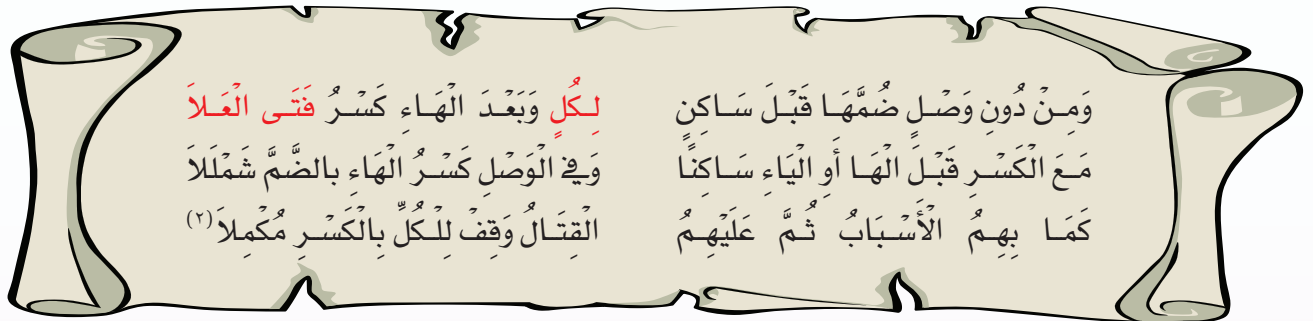 وَمِنْ دُونِ وَصْلٍ ضُمَّهَا قَبْلَ سَاكِنٍ لِكُلٍ وَبَعْدَ الْهَاءِ كَسْرُ فَتَى الْعَلاَ
مَعَ الْكَسْرِ قَبْلَ الْهَا أَوِ الْيَاءِ سَاكِنًا وَفِي الْوَصْلِ كَسْرُ الْهَاءِ بالضَّمَّ شَمْلَلاَ
كَمَا بِهِمُ الْأَسْبَابُ ثُمَّ عَلَيْهِمُ الْقِتَالُ وَقِفْ لِلْكُلِّ بِالْكَسْرِ مُكْمِلاَ (٢)